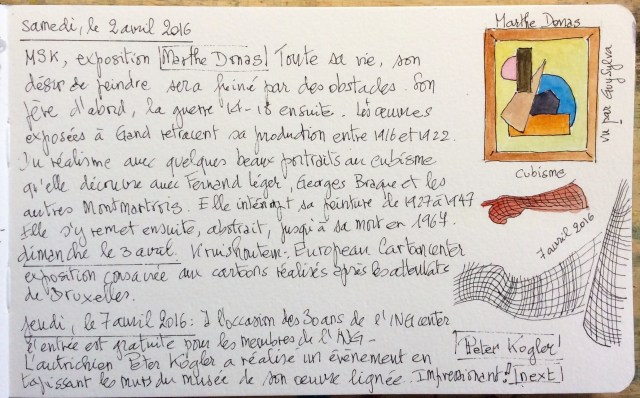 samedi, le 2 avril 2016
MSK, exposition Marthe Donas Toute sa vie, son
désir de peindre sera freiné par des obstacles. Son
père d'abord, la guerre 14-18 ensuite. Les œuvres
exposées à Gand retracent sa production entre 1916 et 1922.
Du réalisme avec quelques beaux portraits au cubisme
qu'elle découvre avec Fernand Léger, Georges Braque et les
autres Montmartrois. Elle interrompt sa peinture de 1927 à 1947
Elle s'y remet ensuite, abstrait, jusqu'à sa mort en 1967.
dimanche le 3 avril. Kruishoutem: European Cartoncenter
exposition consacrée aux cartons réalisés après les attentats
de Bruxelles.
jeudi, le 7 avril 2016: à l'occasion des 30 ans de l'ING center
l'entrée est gratuite pour les membres de l'ING-
L'autrichien Peter Kogler a réalisé un événement en
tapissant les murs du musée de son œuvre lignée. Impressionant! next
Marthe Donas
vu par GuySylva
cubisme
7 avril 2016
Peter Kogler